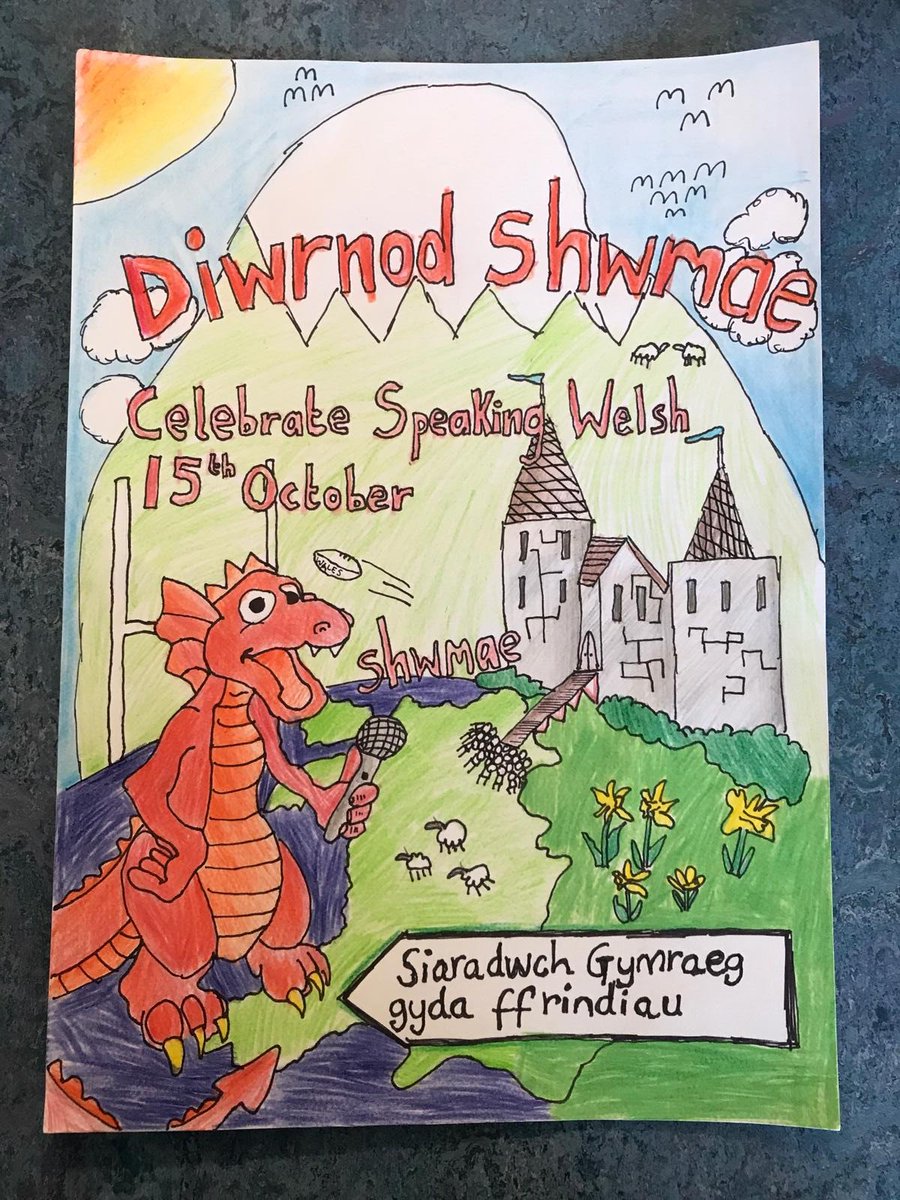 Diwrnod Shwmae
Celebrate Speaking Welsh
15th October
WALES
shwmae
Siaradwch Gymraeg
gyda ffrindiau